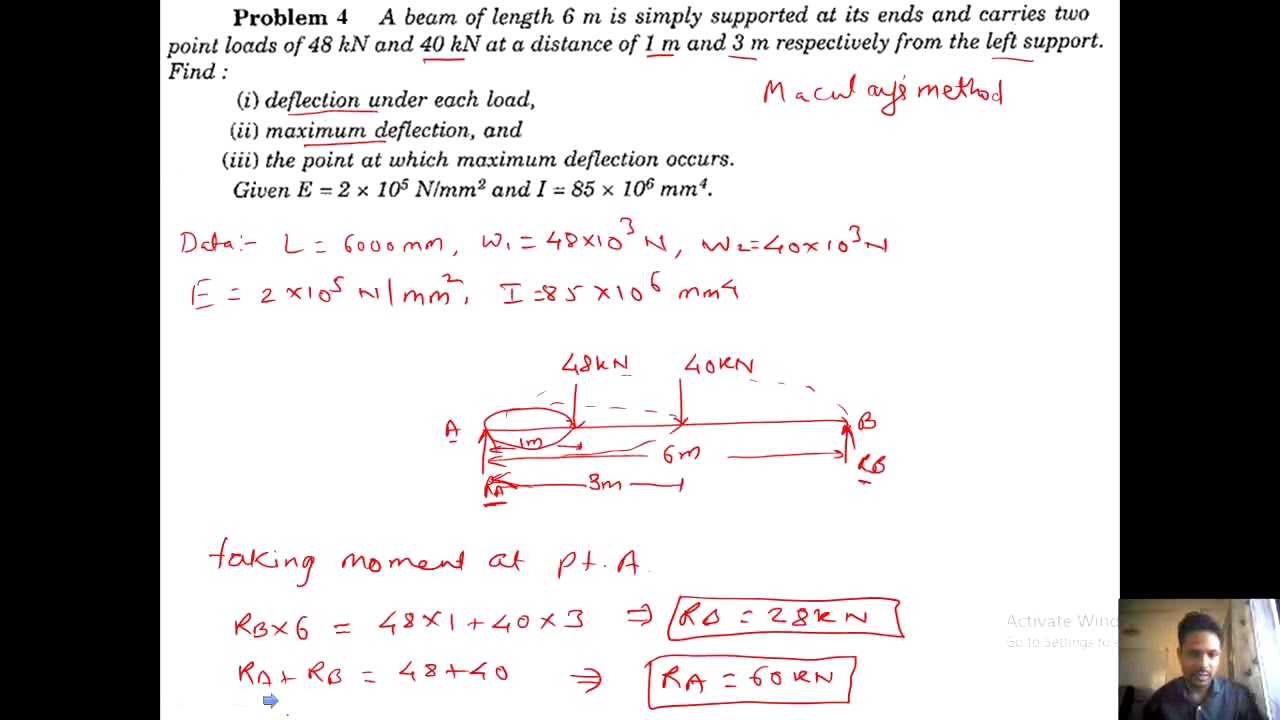 Problem 4 A beam of length 6 m is simply supported at its ends and carries two
point loads of 48 kN and 40 kN at a distance of 1 m and 3 m respectively from the left support.
Find :
(i) deflection under each load,
(ii) maximum deflection, and
(iii) the point at which maximum deflection occurs.
Given E = 2 × 10⁵ N/mm² and I = 85 × 10⁶ mm⁴.
Macul ay's method
Data:- L = 6000 mm, W1 = 48×10³ N, W2 = 40×10³ N
E = 2×10⁵ N/mm², I = 85 × 10⁶ mm4
48kN 40KN
A B
1m
6m
RB
RA 3m
taking moment at pt. A.
RB×6 = 48×1+40×3 ⇒ RB = 28KN
RA+RB = 48+40 ⇒ RA = 60KN
Activate Wind
Go to Settings to a